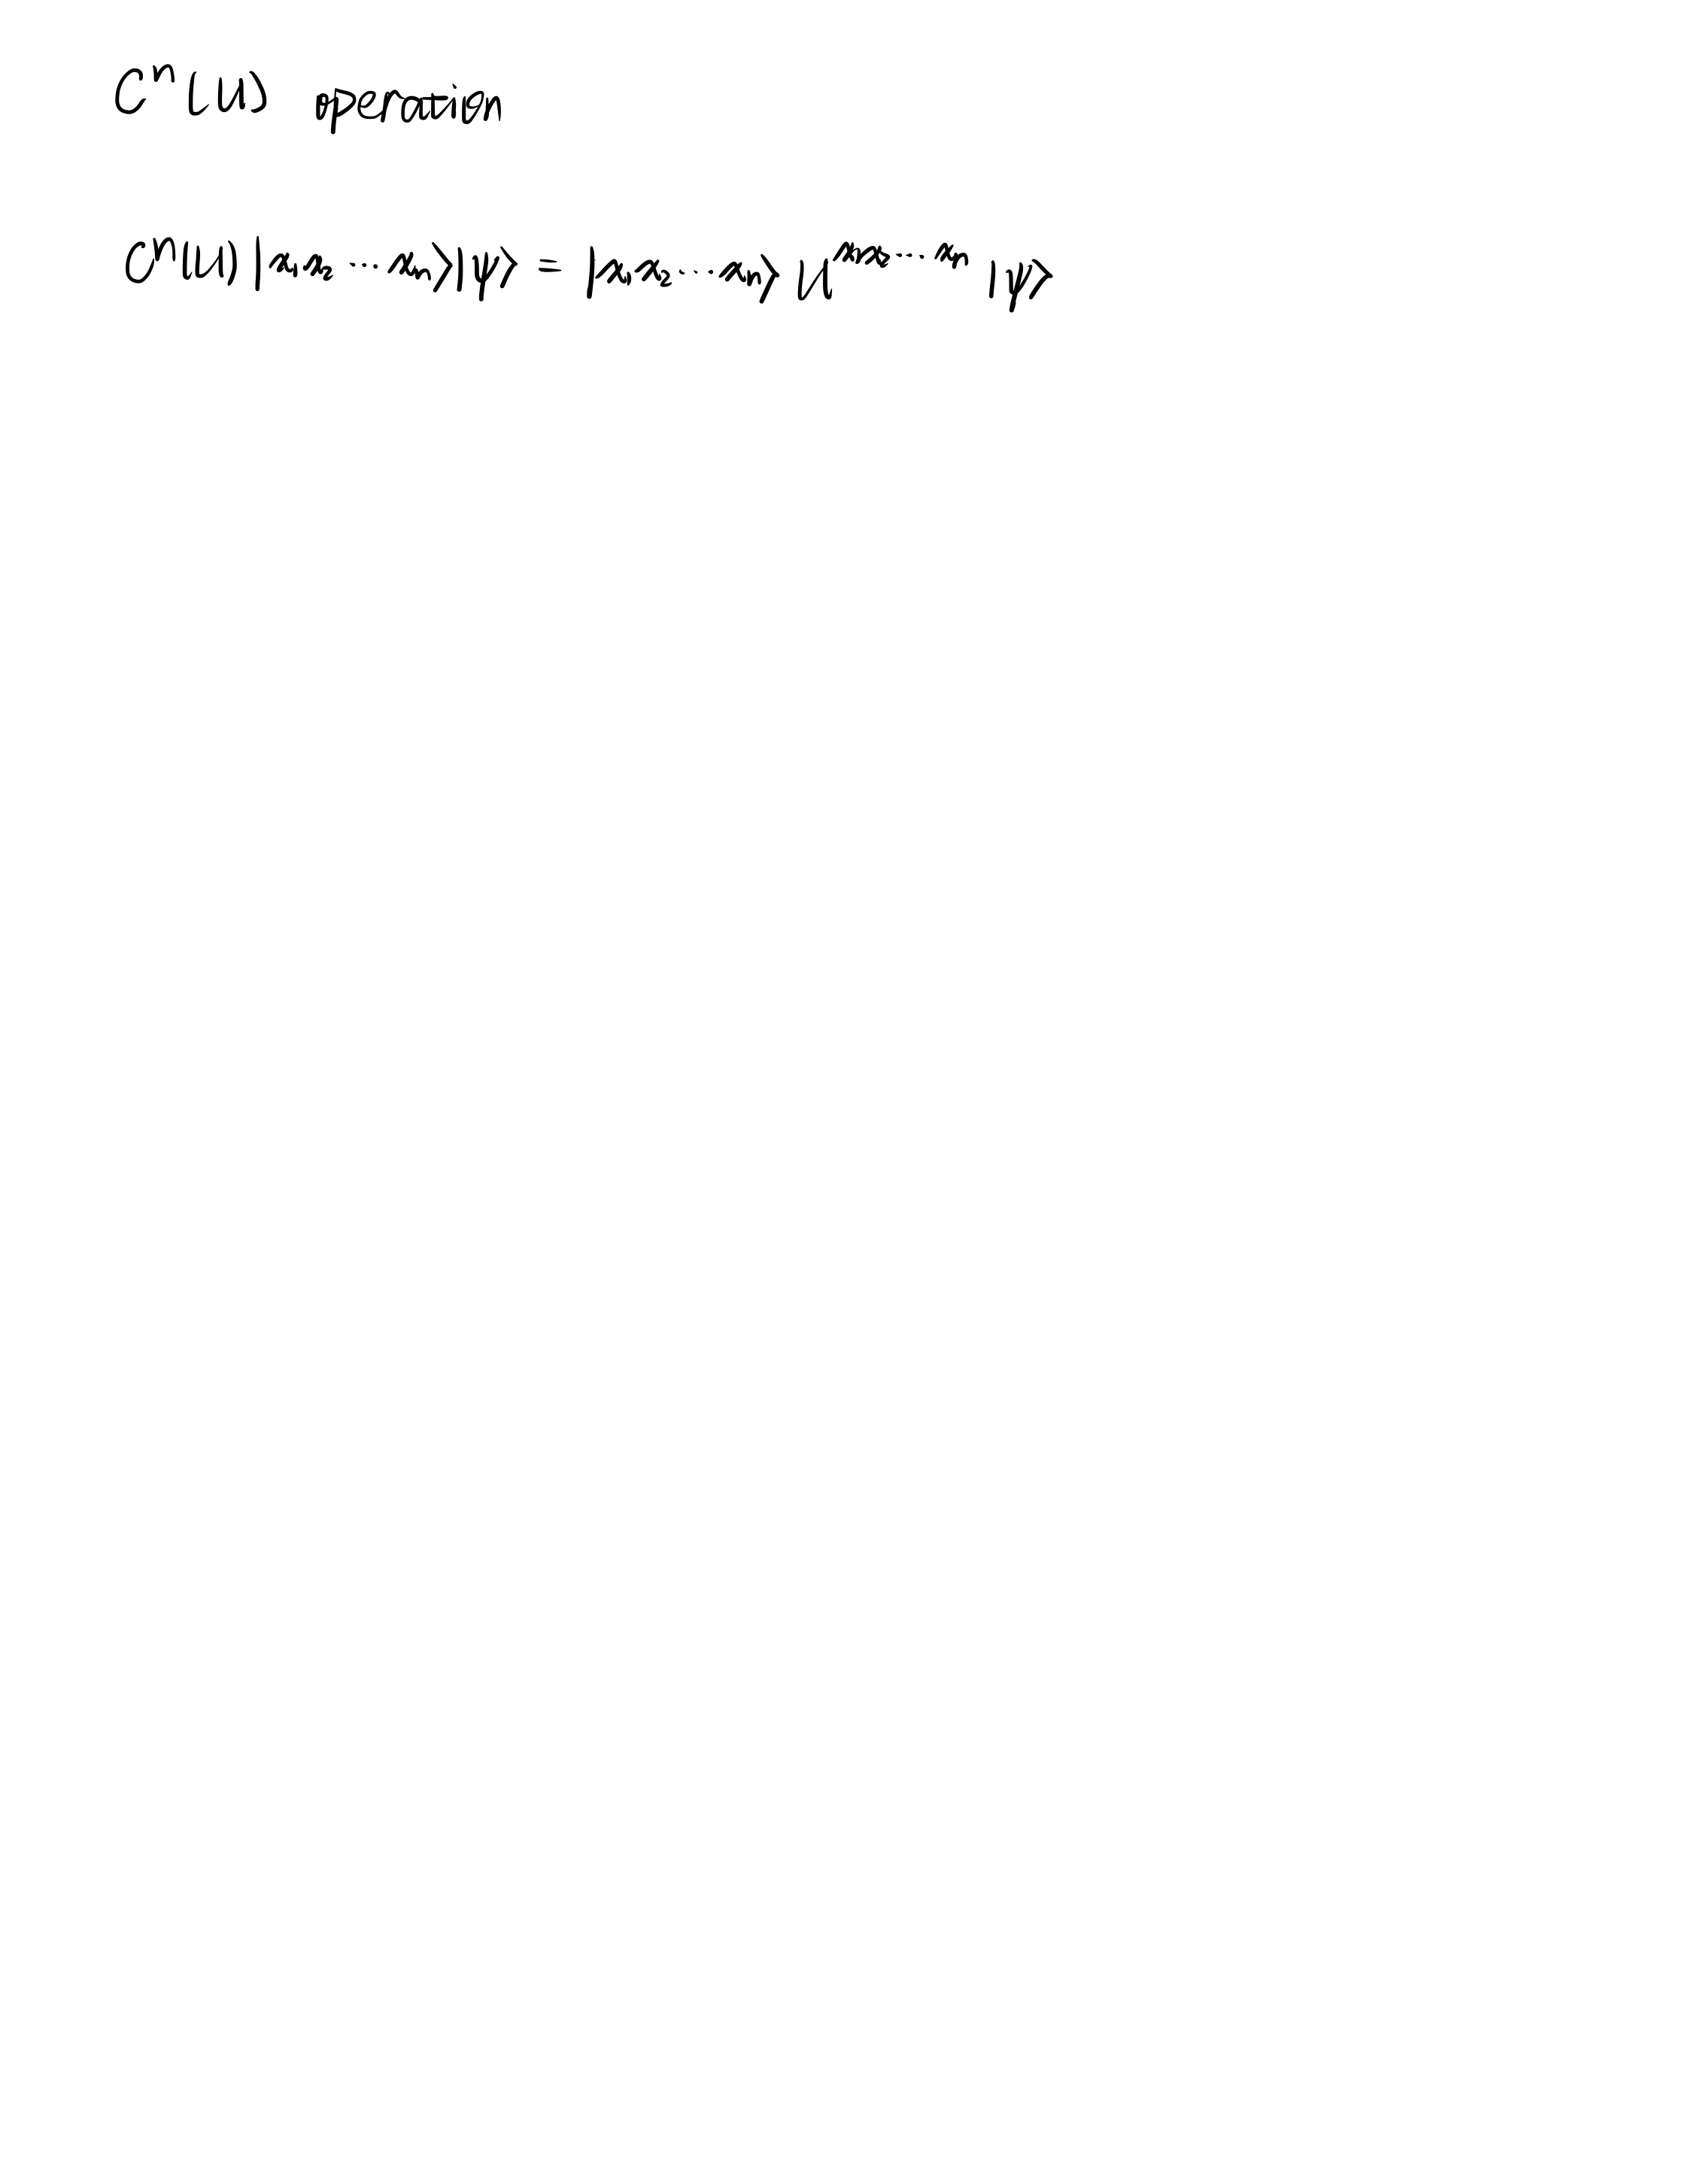 Cⁿ(U) operation
Cⁿ(U)|x₁x₂⋯xₙ⟩|ψ⟩ = |x₁x₂⋯xₙ⟩ U^{x₁x₂⋯xₙ} |ψ⟩